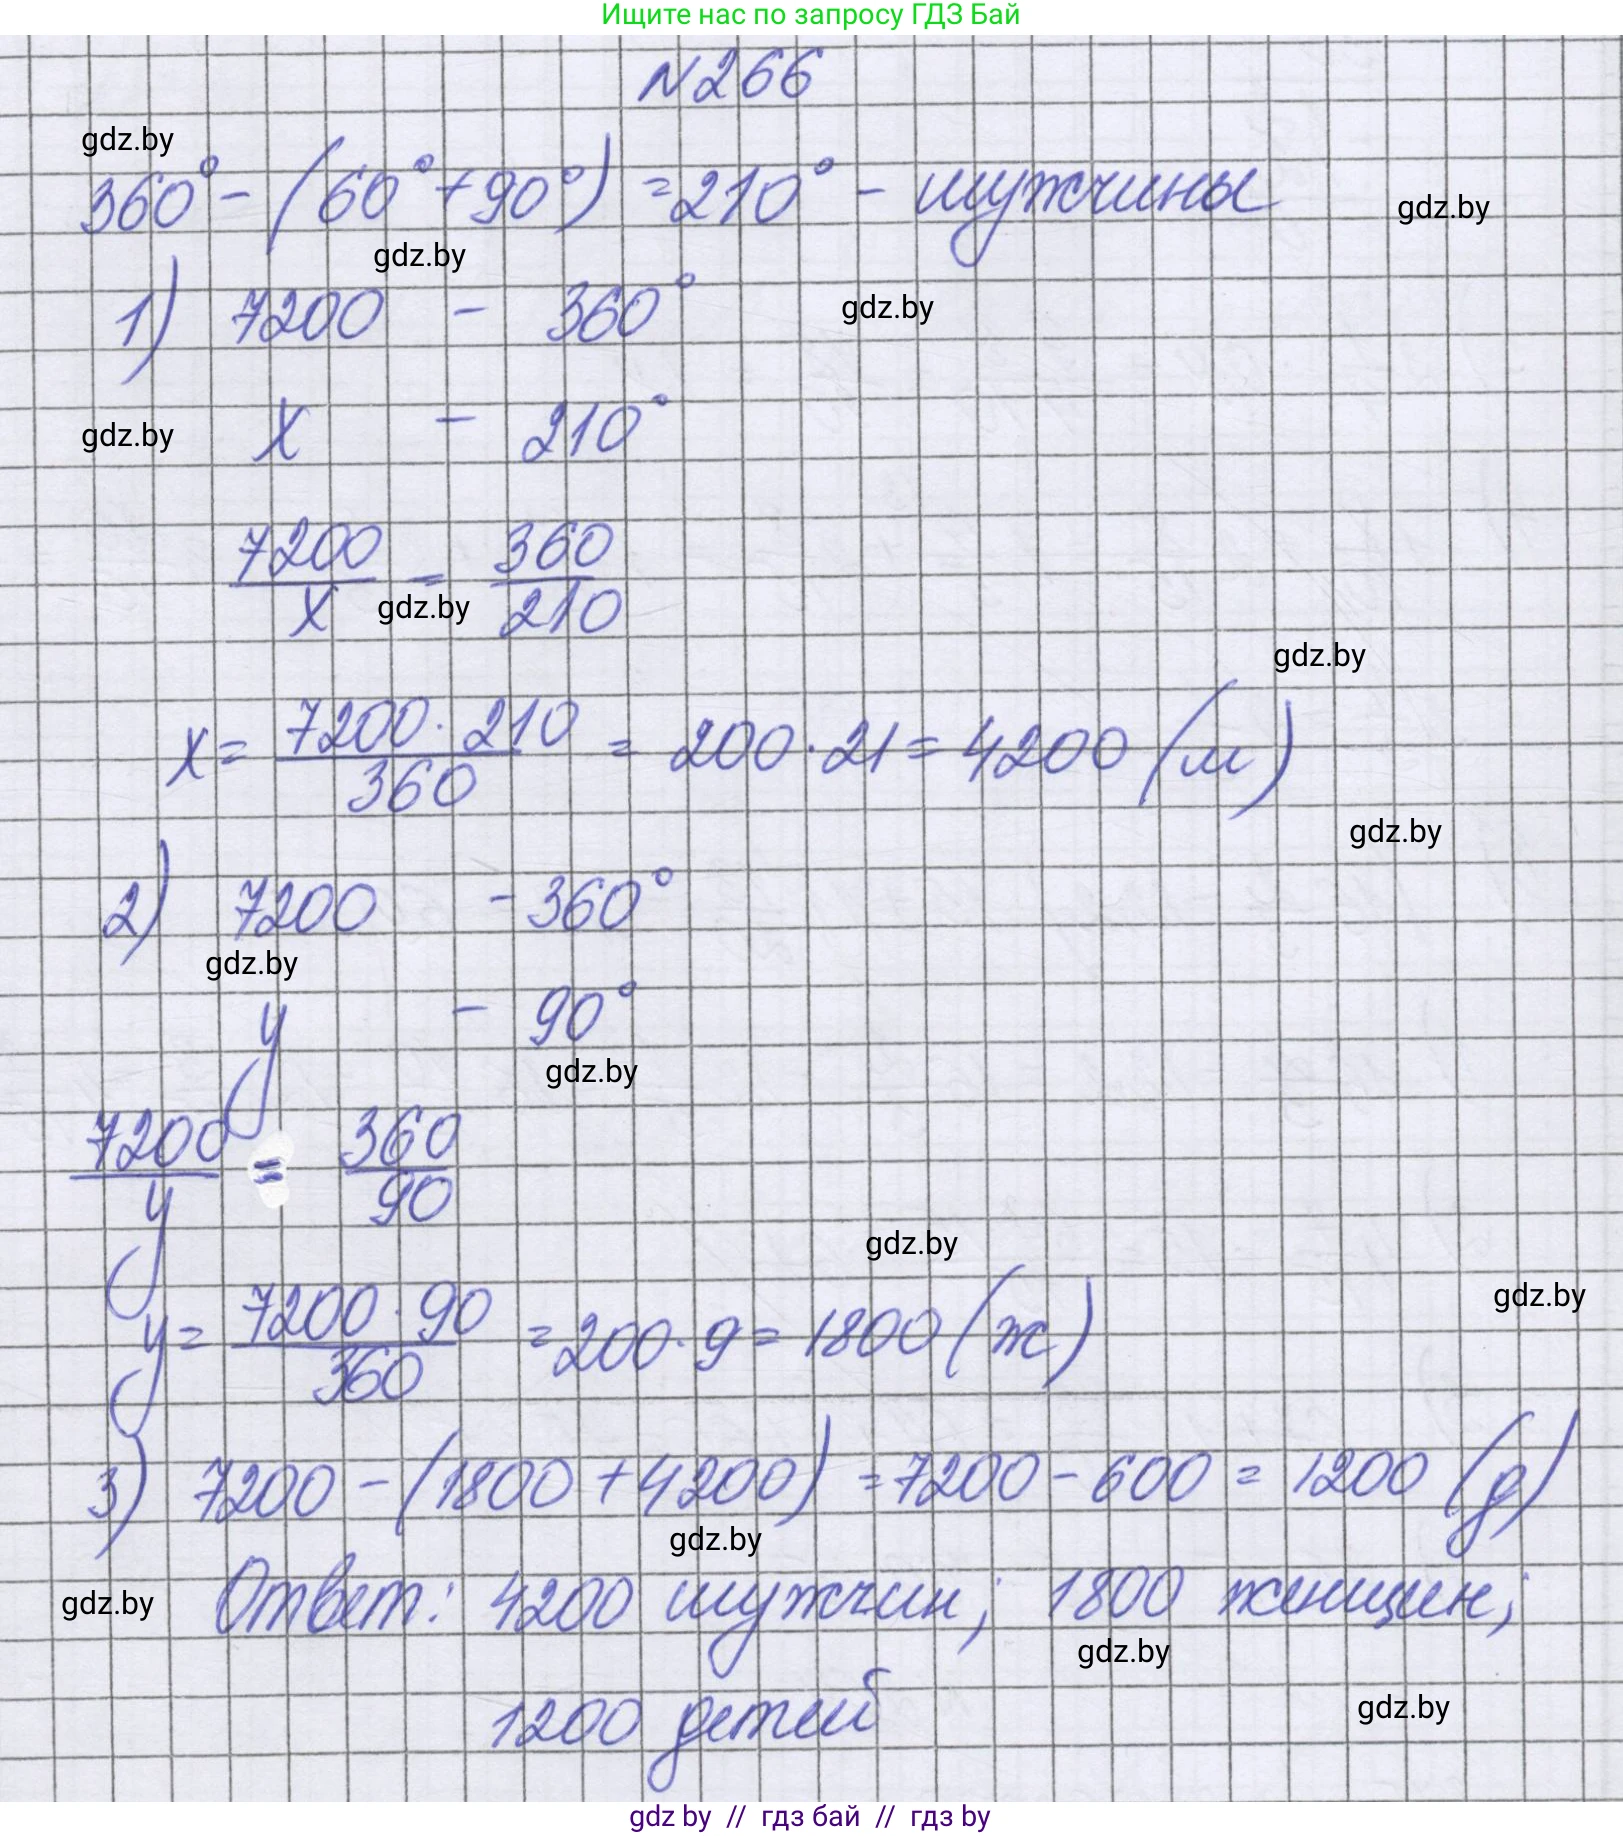 Ищите нас по запросу ГДЗ Бай
N266
gdz.by
360° - (60° + 90°) = 210° - мужчины
gdz.by
gdz.by
1) 7200 - 360°
gdz.by
x - 210°
gdz.by
7200/x = 360/210
gdz.by
gdz.by
x = 7200 · 210/360 = 200 · 21 = 4200 (м)
gdz.by
2) 7200 - 360°
gdz.by
y - 90°
gdz.by
7200/y = 360/90
gdz.by
gdz.by
y = 7200 · 90/360 = 200 · 9 = 1800 (ж)
3) 7200 - (1800 + 4200) = 7200 - 600 = 1200 (д)
gdz.by
Ответ: 4200 мужчин; 1800 женщин;
gdz.by
gdz.by
1200 детей
gdz.by
gdz by // гдз бай // гдз by